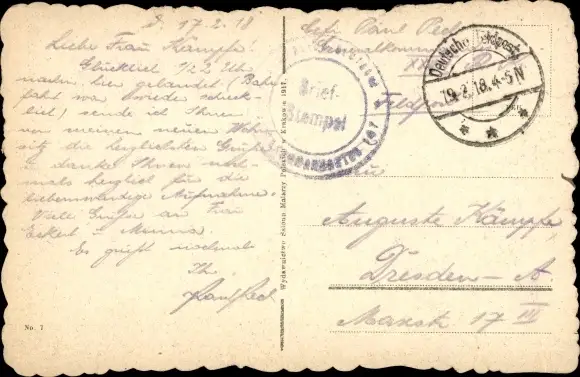 17.2.18
Liebe Frau Kämpfe!
Glücklich 1/22 Uhr
nachm. hier gelandet (Bahn-
fahrt war wieder schreck-
lich!) sende ich Ihnen
von meinem neuen Wohn-
sitz die herzlichsten Grüße
u. danke Ihnen noch-
mals herzlich für die
liebenswürdige Aufnahme.
Viele Grüße an Frau
Eckert u. Mama.
Es grüßt nochmals
Ihr
No. 1
Wydawnictwo Salonu Malarzy Polskich w Krakowie 1917.
Gefr. Paul
Generalkommando
Feldpost
Brief-
Stempel
Deutsche Feldpost
19.2.18.4-5N
Auguste Kämpfe,
Dresden-A
Marsch. 17 III